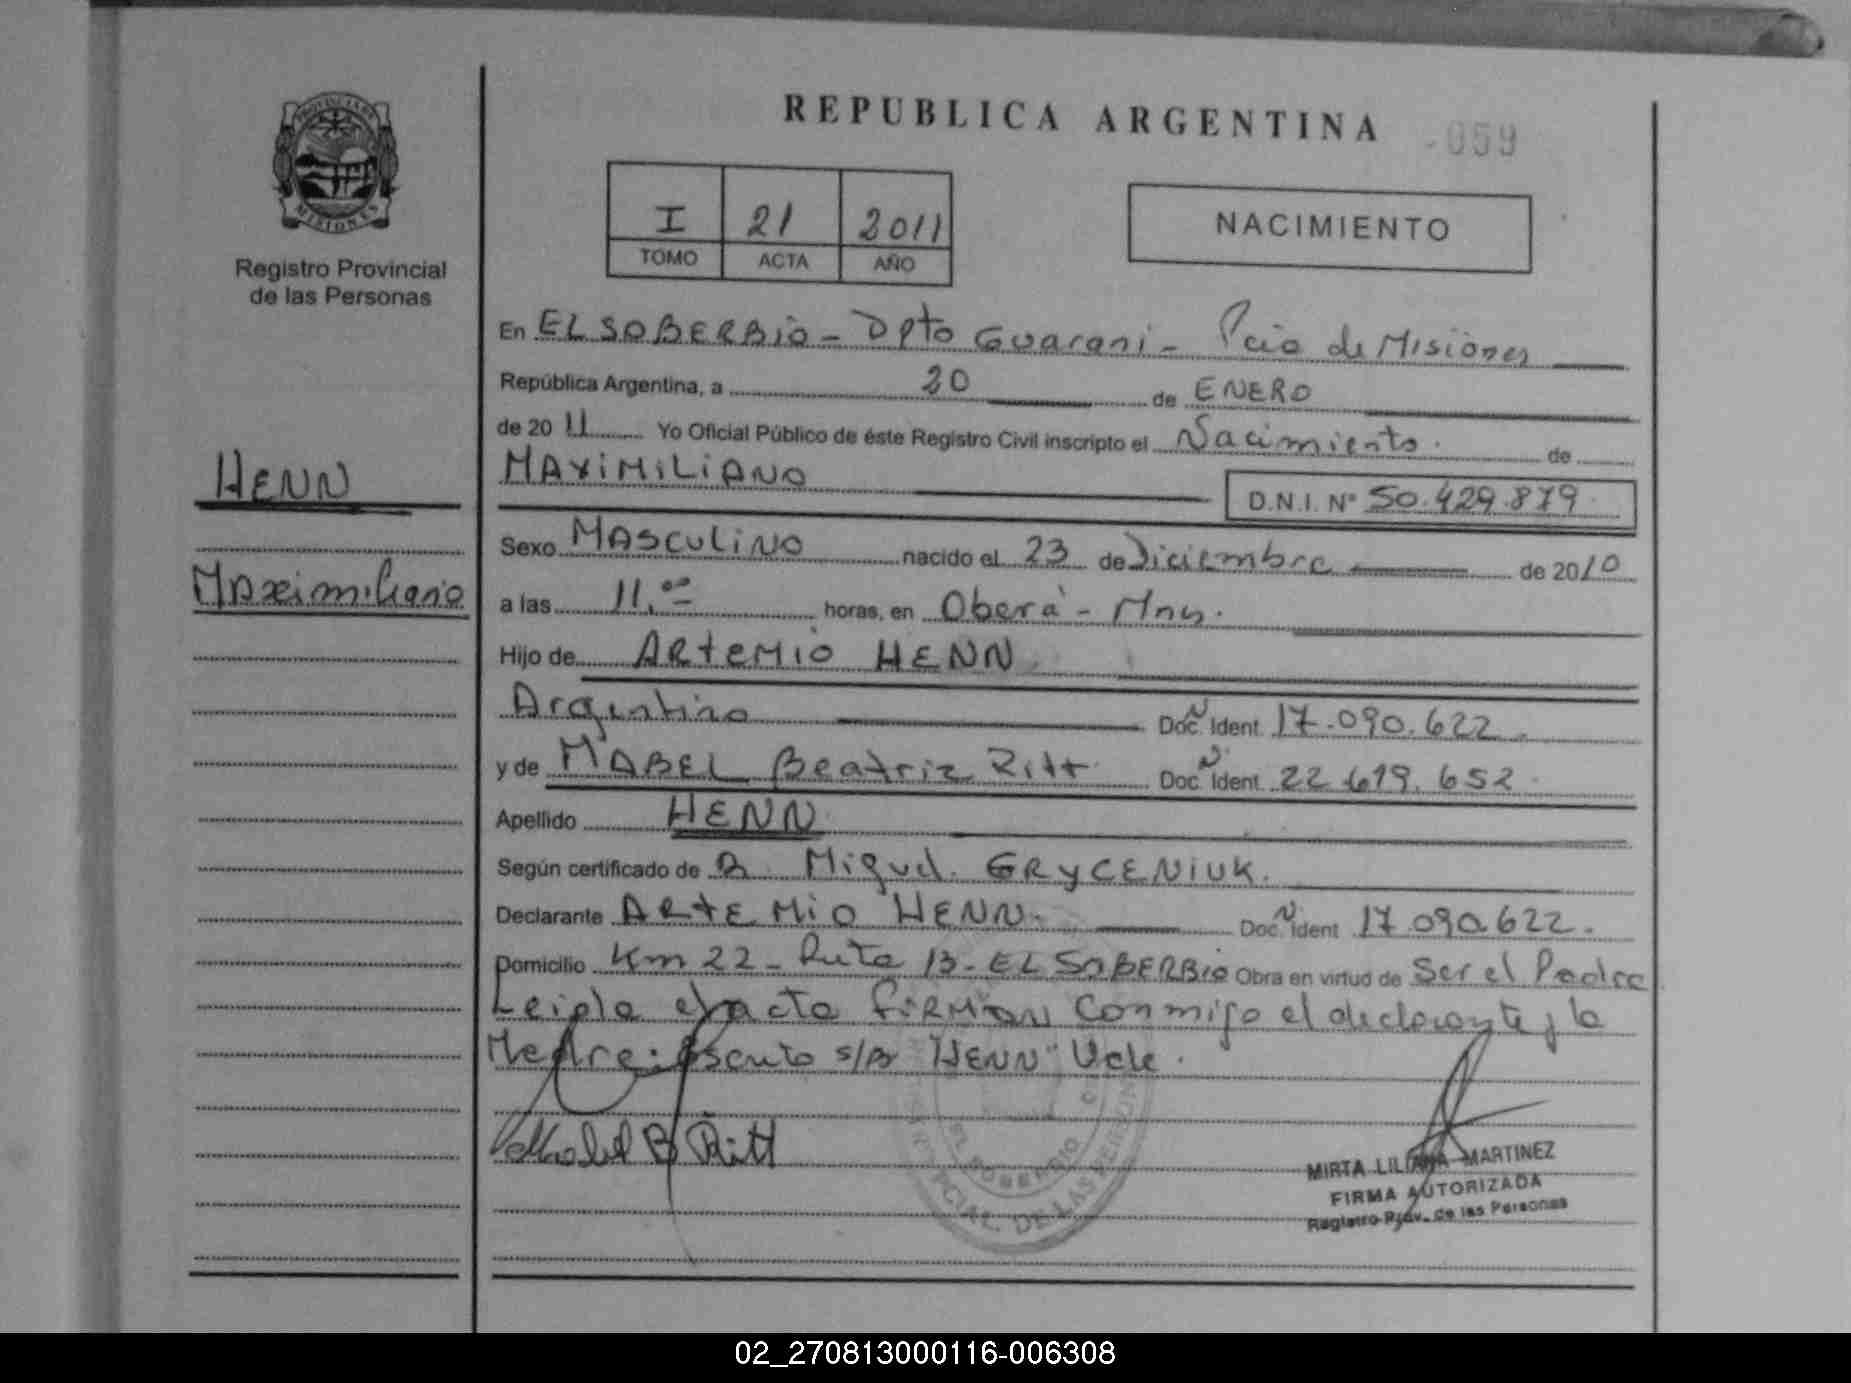 REPUBLICA ARGENTINA
-059
PROVINCIA DE
MISIONES
Registro Provincial
de las Personas
I 21 2011
TOMO ACTA AÑO
NACIMIENTO
En EL SOBERBIO - Dpto Guarani - Pcia de Misiones
República Argentina, a 20 de ENERO
de 20 11 Yo Oficial Público de éste Registro Civil inscripto el Nacimiento. de
HENN
MAXIMILIANO
D.N.I. Nº 50.429.879
Sexo MASCULINO nacido el 23 de Diciembre de 2010
Maximiliano
a las 11,00 horas, en Oberá - Mns.
Hijo de ARTEMIO HENN
Argentino Doc. Ident. 17.090.622
y de MABEL Beatriz Ritt Doc. Ident. 22.619.652
Apellido HENN
Según certificado de Miguel GRYCENIUK.
Declarante ARTEMIO HENN. Doc. Ident 17.090.622.
Domicilio Km 22 - Ruta 13 - EL SOBERBIO Obra en virtud de Ser el Padre
Leida el acta FIRMAN conmigo el declarante y la
Madre: s/B "HENN" Vale.
Mabel B Ritt
EL SOBERBIO
PCIAL. DE LAS PERSONAS
MIRTA LILIANA MARTINEZ
FIRMA AUTORIZADA
Registro Prov. de las Personas
02_270813000116-006308